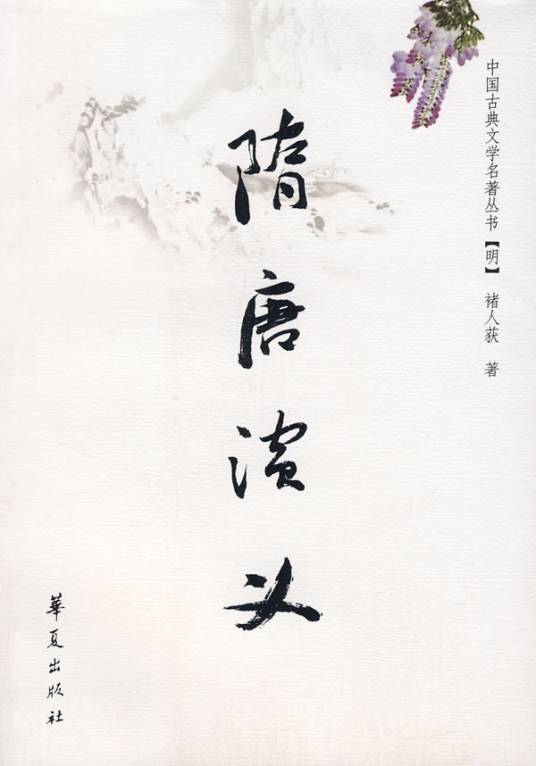 中国古典文学名著丛书【明】 褚人获 著
隋唐演义
華夏出版社